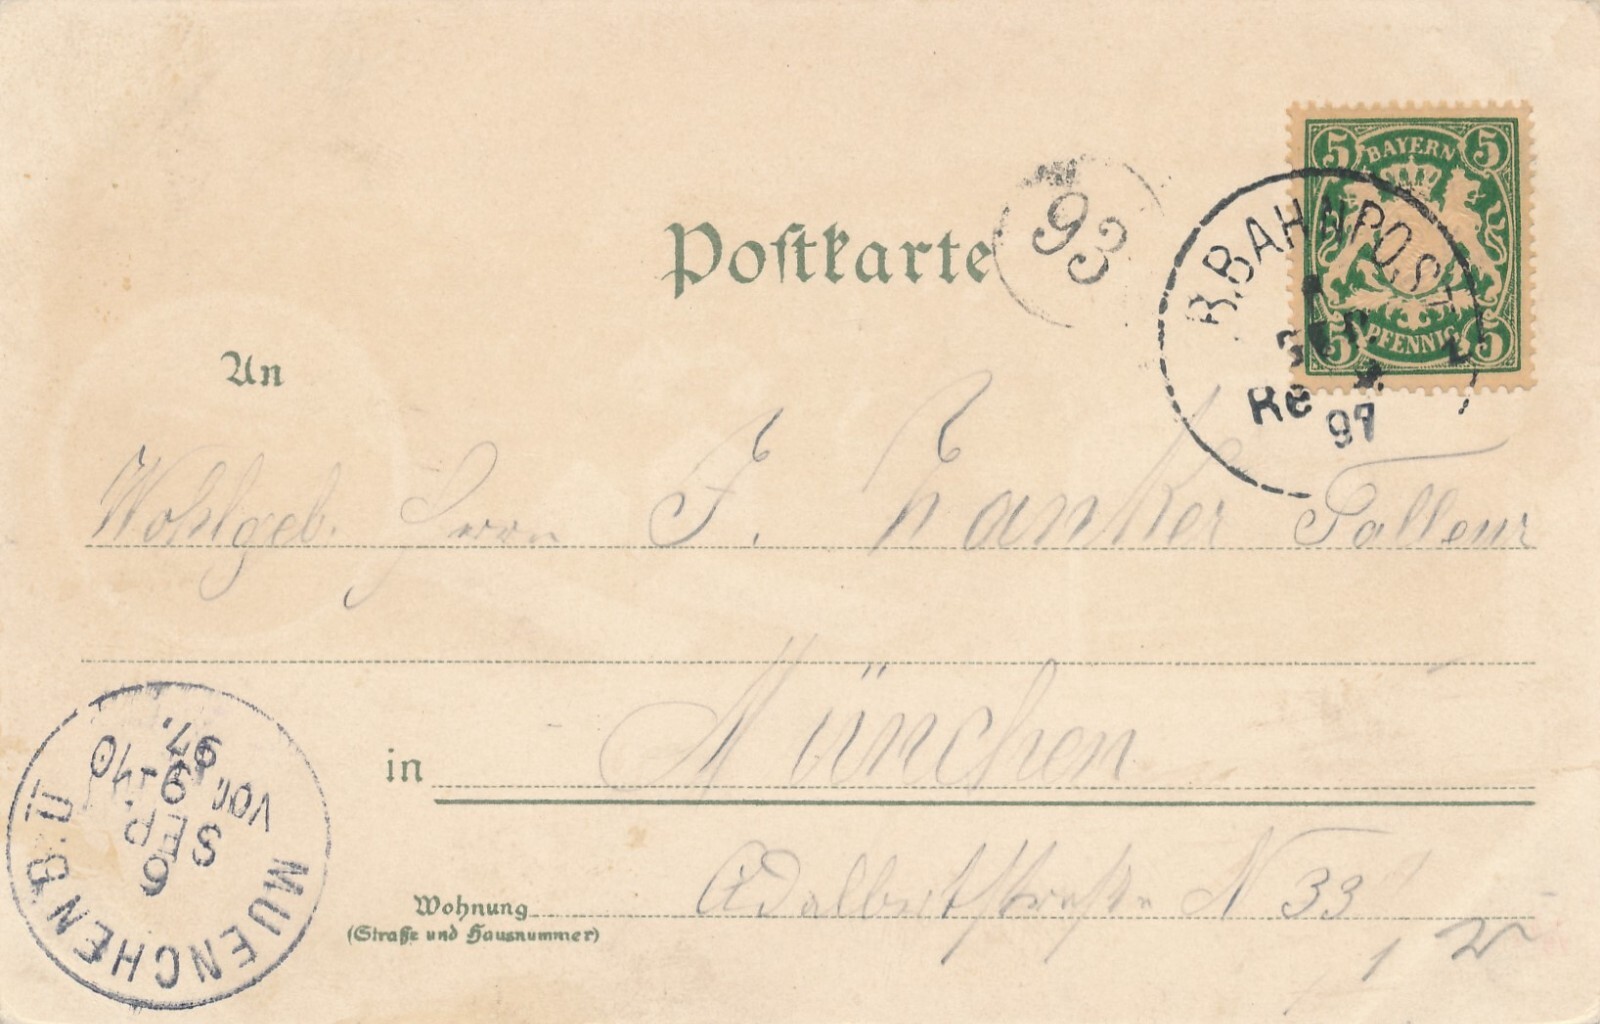 5 BAYERN 5
5 PFENNIG 5
K.BAHNPOST
SEP.
97
93
Postkarte
An
Wohlgeb. Herrn J. Zanker
in München
Wohnung Adalbertstraße N 33
(Straße und Hausnummer)
MUENCHEN B.II
6
SEP.
VOR. 9-10
97.